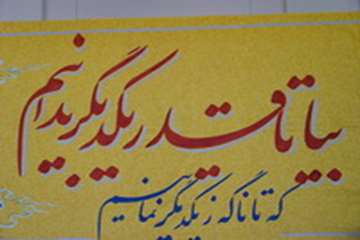 بیا تا قدر یکدیگر بدانیم
که تا ناگه ز یکدیگر نمانیم